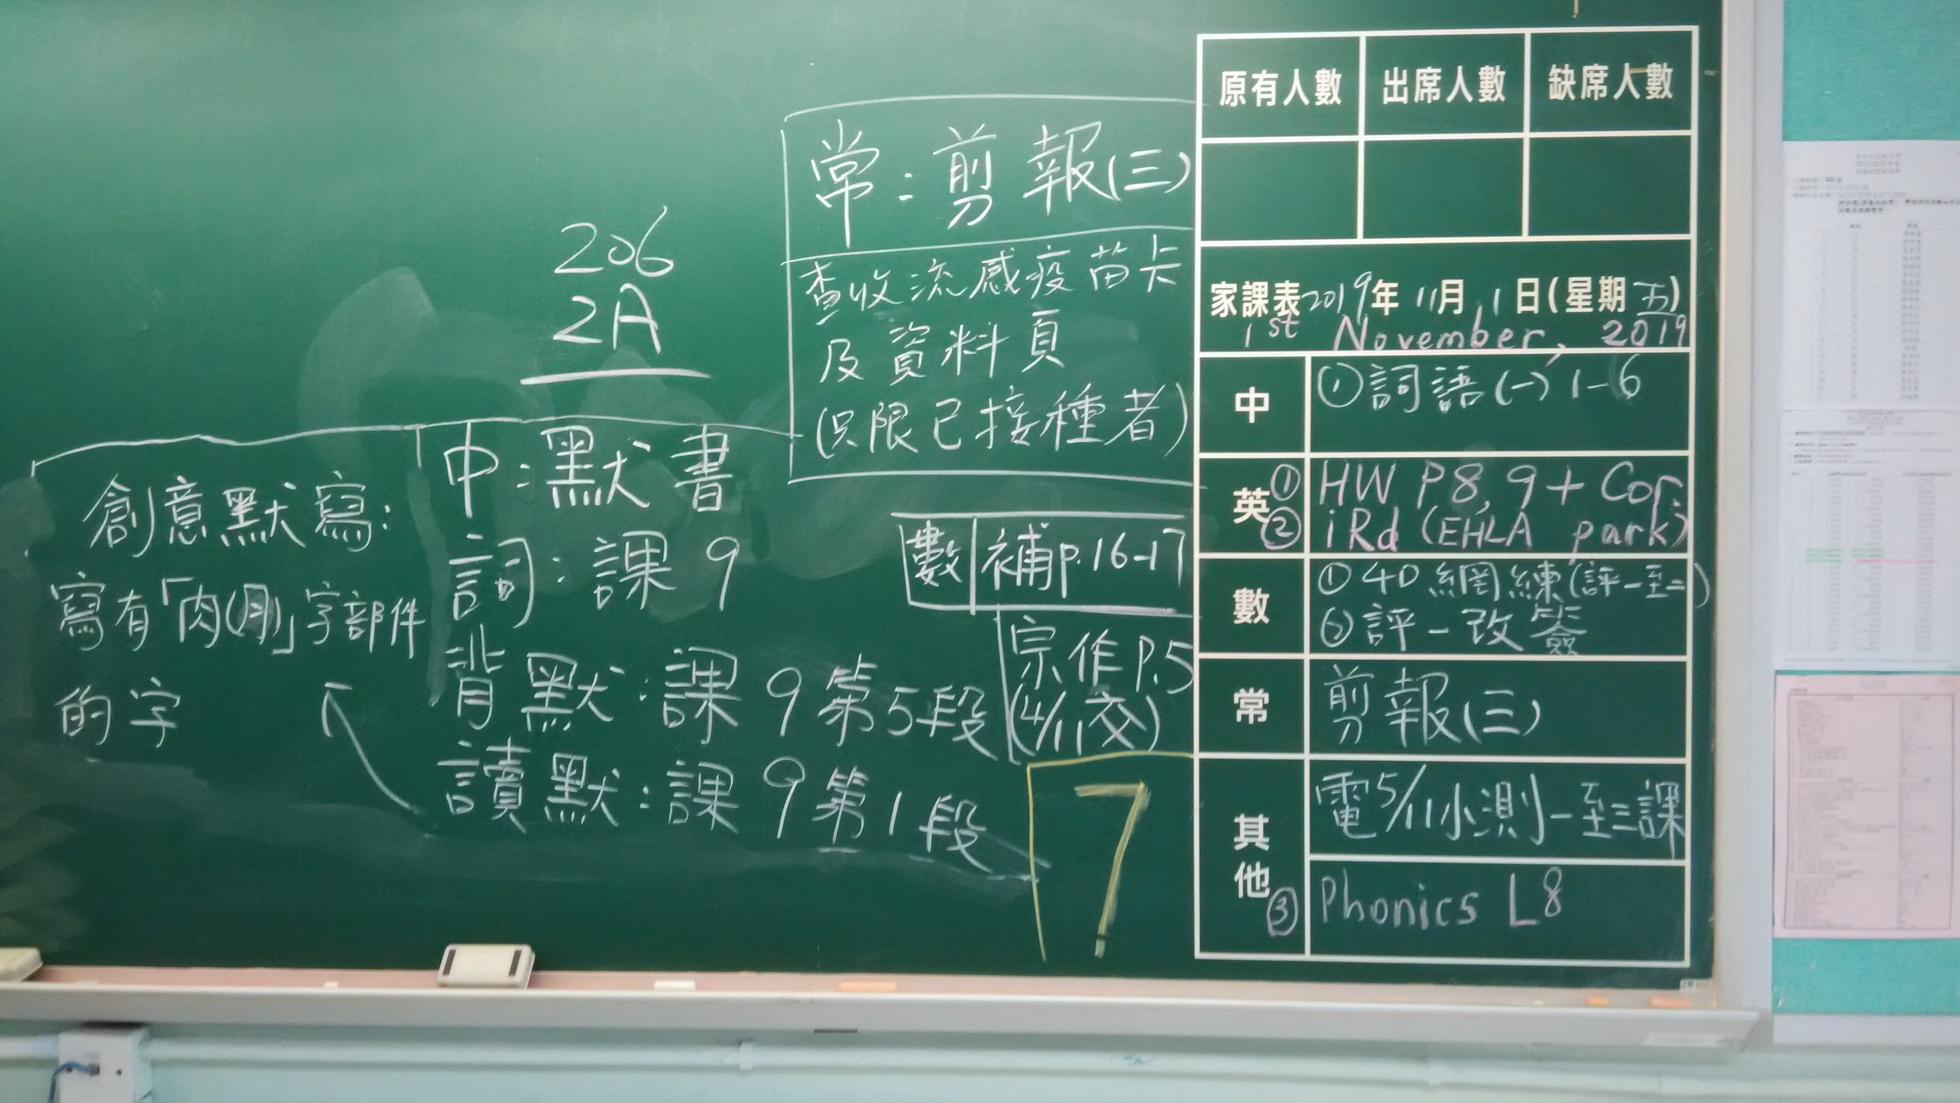 206
2A
常：剪報(三)
查收流感疫苗卡
及資料頁
(只限已接種者)
創意默寫：
寫有「肉(月)」字部件
的字
中：默書
詞：課9
背默：課9第5段
讀默：課9第1段
數 補p.16-17
宗作P.5
(4/11交)
7
原有人數 出席人數 缺席人數
家課表2019年11月1日(星期五)
1st November, 2019
中 ①詞語(一)1-6
英 ① HW P8,9 + Cor.
② iRd (EHLA park)
數 ①4D網練(評一至二)
②評一改簽
常 剪報(三)
其他 電5/11小測一至三課
③ Phonics L8